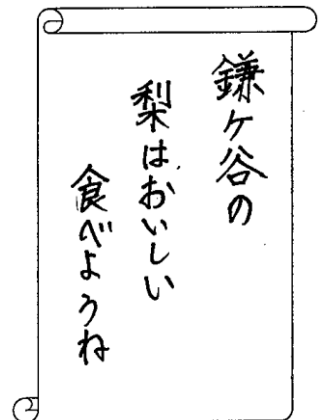 鎌ケ谷の
梨はおいしい
食べようね